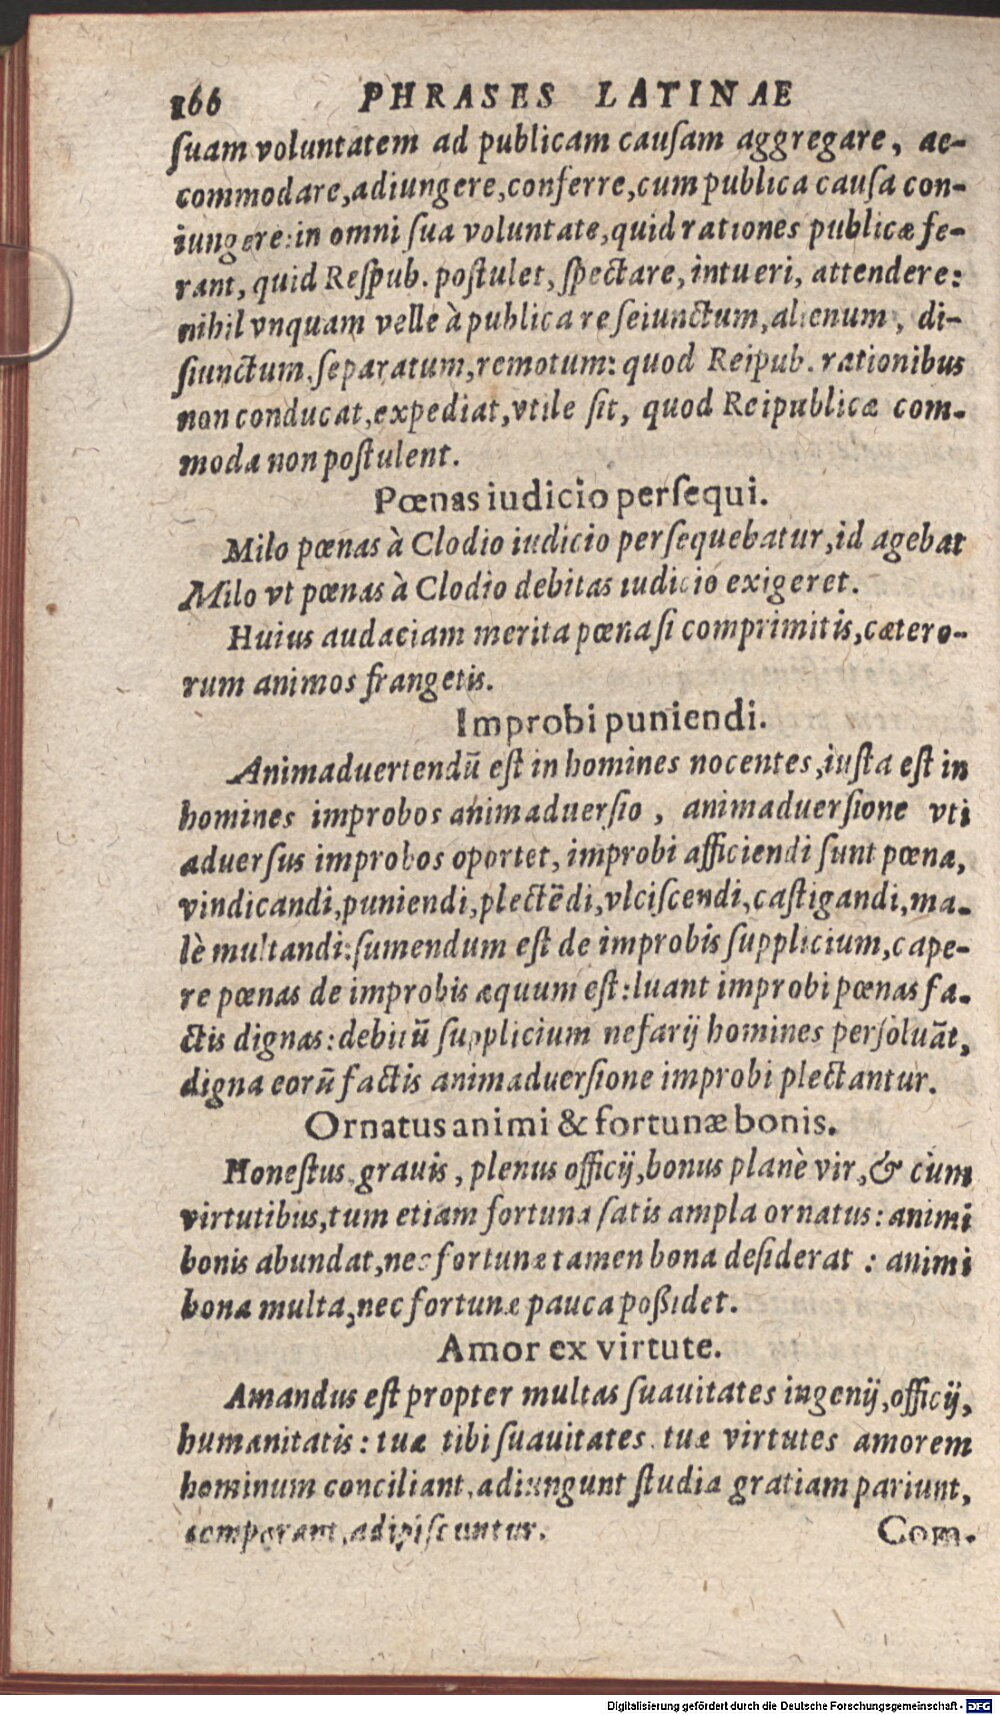 166 PHRASES LATINAE
ſuam voluntatem ad publicam cauſam aggregare, ac-
commodare, adiungere, conferre, cum publica cauſa con-
iungere: in omni ſua voluntate, quid rationes publicæ fe-
rant, quid Reſpub. poſtulet, ſpectare, intueri, attendere:
nihil vnquam velle à publica re ſeiunctum, alienum, di-
ſiunctum, ſeparatum, remotum: quod Reipub. rationibus
non conducat, expediat, vtile ſit, quod Reipublicæ com-
moda non poſtulent.
Pœnas iudicio perſequi.
Milo pœnas à Clodio iudicio perſequebatur, id agebat
Milo vt pœnas à Clodio debitas iudicio exigeret.
Huius audaciam merita pœna ſi comprimitis, cætero-
rum animos frangetis.
Improbi puniendi.
Animaduertendū eſt in homines nocentes, iuſta eſt in
homines improbos animaduerſio, animaduerſione vti
aduerſus improbos oportet, improbi afficiendi ſunt pœna,
vindicandi, puniendi, plectēdi, vlciſcendi, caſtigandi, ma-
lè multandi: ſumendum eſt de improbis ſupplicium, cape-
re pœnas de improbis æquum eſt: luant improbi pœnas fa-
ctis dignas: debitū ſupplicium nefarij homines perſoluāt,
digna eorū factis animaduerſione improbi plectantur.
Ornatus animi & fortunæ bonis.
Honeſtus, grauis, plenus officij, bonus planè vir, & cùm
virtutibus, tum etiam fortuna ſatis ampla ornatus: animi
bonis abundat, nec fortunæ tamen bona deſiderat: animi
bona multa, nec fortunæ pauca poßidet.
Amor ex virtute.
Amandus eſt propter multas ſuauitates ingenij, officij,
humanitatis: tuæ tibi ſuauitates, tuæ virtutes amorem
hominum conciliant, adiungunt ſtudia gratiam pariunt,
comparant, adipiſcuntur. Com-
Digitalisierung gefördert durch die Deutsche Forschungsgemeinschaft - DFG